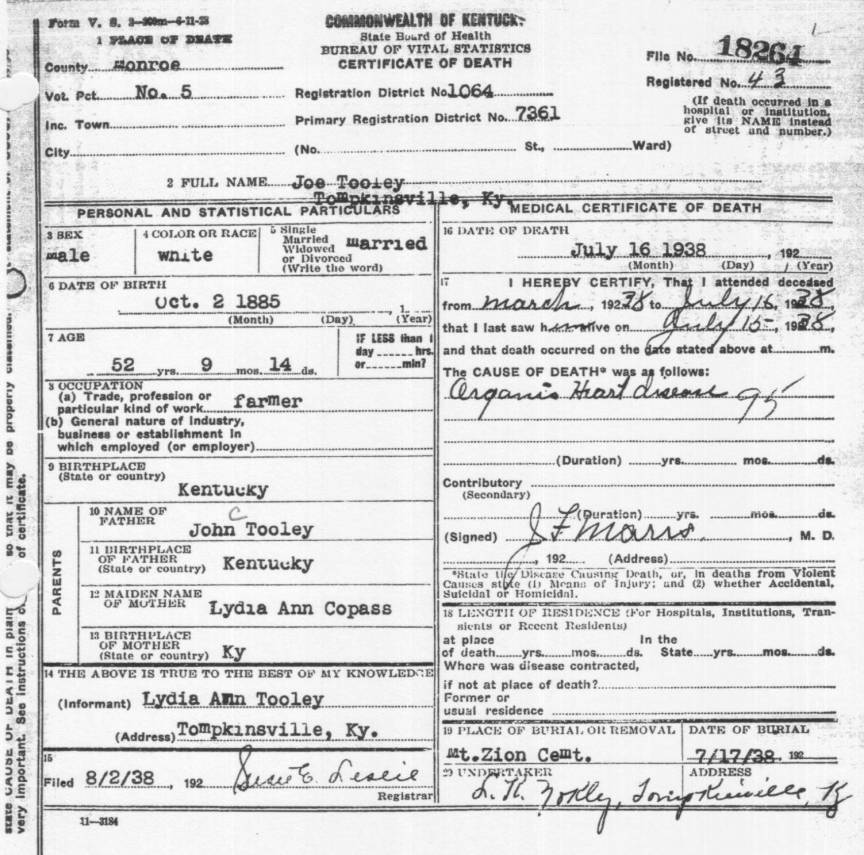 Form V. S. 2-300m-6-11-28
COMMONWEALTH OF KENTUCKY
State Board of Health
BUREAU OF VITAL STATISTICS
CERTIFICATE OF DEATH
1 PLACE OF DEATH
County Monroe
Vot. Pct. No. 5
Inc. Town
City
Registration District No. 1064
Primary Registration District No. 7361
(No. St., Ward)
File No. 18264
Registered No. 43
(If death occurred in a
hospital or institution,
give its NAME instead
of street and number.)
2 FULL NAME Joe Tooley
Tompkinsville, Ky.
PERSONAL AND STATISTICAL PARTICULARS
3 SEX
male
4 COLOR OR RACE
white
5 Single
Married
Widowed
or Divorced
(Write the word)
married
6 DATE OF BIRTH
Oct. 2 1885
(Month) (Day) 1 (Year)
7 AGE
52 yrs. 9 mos. 14 ds.
IF LESS than 1
day hrs.
or min?
8 OCCUPATION
(a) Trade, profession or
particular kind of work farmer
(b) General nature of industry,
business or establishment in
which employed (or employer)
9 BIRTHPLACE
(State or country)
Kentucky
PARENTS
10 NAME OF
FATHER
John C Tooley
11 BIRTHPLACE
OF FATHER
(State or country) Kentucky
12 MAIDEN NAME
OF MOTHER
Lydia Ann Copass
13 BIRTHPLACE
OF MOTHER
(State or country) Ky
14 THE ABOVE IS TRUE TO THE BEST OF MY KNOWLEDGE
(Informant) Lydia Ann Tooley
(Address) Tompkinsville, Ky.
15
Filed 8/2/38, 192 Susie E. Leslie
Registrar
11-3184
MEDICAL CERTIFICATE OF DEATH
16 DATE OF DEATH
July 16 1938, 192
(Month) (Day) (Year)
17 I HEREBY CERTIFY, That I attended deceased
from march, 1938 to July 16, 1938
that I last saw h alive on July 15, 1938,
and that death occurred on the date stated above at m.
The CAUSE OF DEATH* was as follows:
Organic Heart disease 95
(Duration) yrs. mos. ds.
Contributory
(Secondary)
(Duration) yrs. mos. ds.
(Signed) J F Marrs, M. D.
, 192 (Address)
*State the Disease Causing Death, or, in deaths from Violent
Causes state (1) Means of Injury; and (2) whether Accidental,
Suicidal or Homicidal.
18 LENGTH OF RESIDENCE (For Hospitals, Institutions, Tran-
sients or Recent Residents)
at place In the
of death yrs. mos. ds. State yrs. mos. ds.
Where was disease contracted,
if not at place of death?
Former or
usual residence
19 PLACE OF BURIAL OR REMOVAL
Mt.Zion Cemt.
DATE OF BURIAL
7/17/38. 192
20 UNDERTAKER
ADDRESS
Tompkinsville, Ky
state CAUSE OF DEATH in plain so that it may be properly classified.
very important. See instructions of certificate.